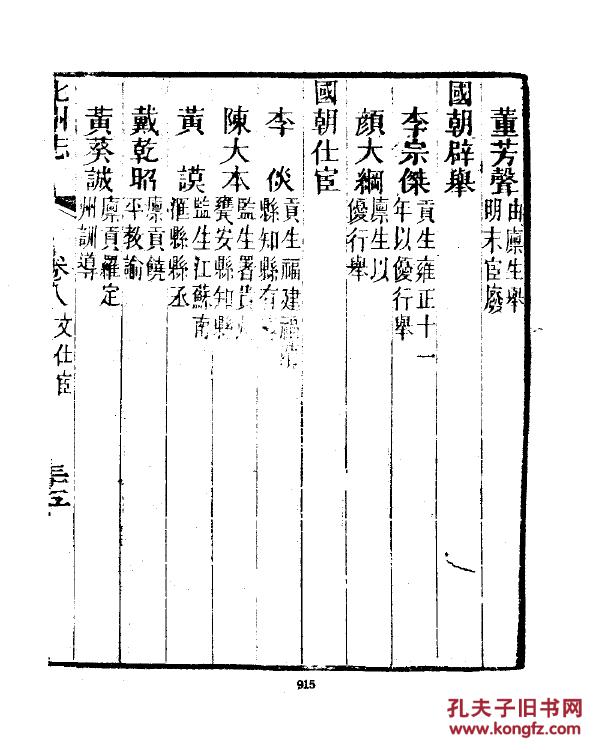 董芳聲 由廩生舉明末宦廢
國朝辟舉
李宗傑 貢生雍正十一年以優行舉
顏大綱 廩生以優行舉
國朝仕宦
李倓 貢生福建 縣知縣有
陳大本 監生署貴 甕安縣知縣
黃謨 監生江蘇南滙縣縣丞
戴乾昭 廩貢饒平教諭
黃葵誠 廩貢羅定州訓導
州志 卷八 文仕宦 三五
915
孔夫子旧书网
www.kongfz.com